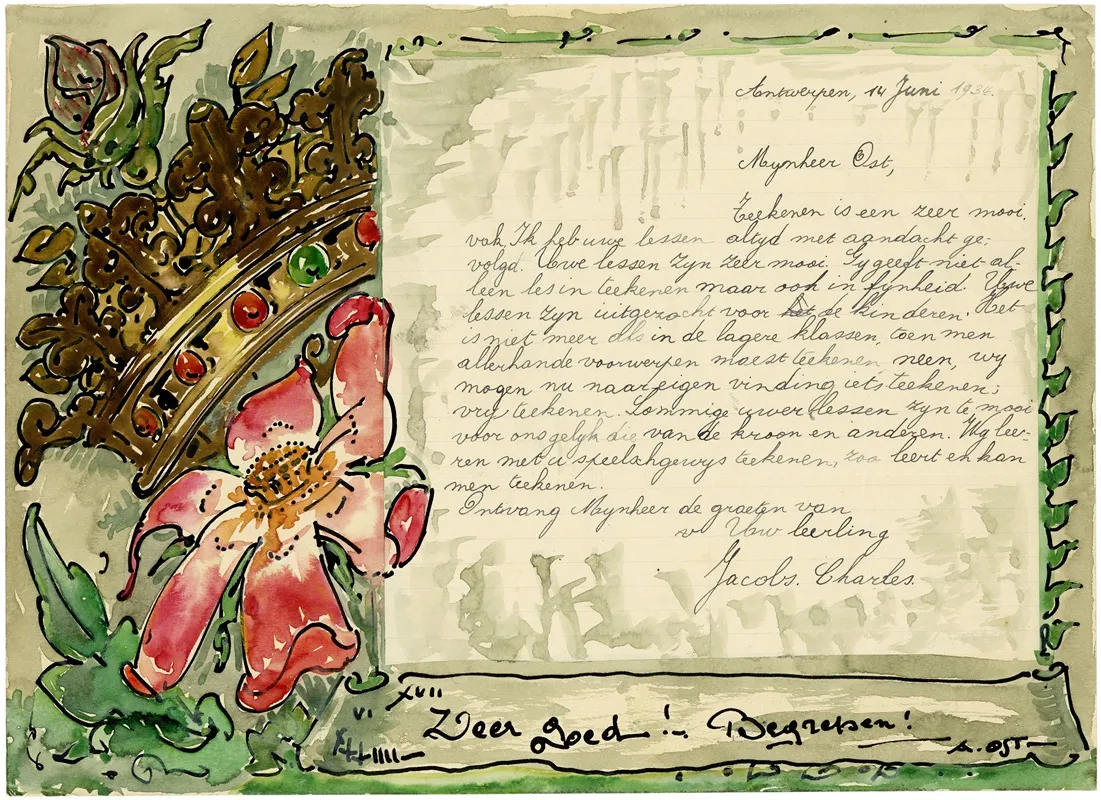 Antwerpen, 14 Juni 1934.
Mynheer Ost,
Teekenen is een zeer mooi.
vak. Ik heb uwe lessen altyd met aandacht ge:
volgd. Uwe lessen zyn zeer mooi. Gy geeft niet al-
leen les in teekenen maar ook in fynheid. Uwe
lessen zyn uitgezocht voor de kinderen. Het
is niet meer als in de lagere klassen, toen men
allerhande voorwerpen moest teekenen, neen, wy
mogen nu naar eigen vinding iets teekenen;
vry teekenen. Sommige uwer lessen zyn te mooi
voor ons gelyk die van de kroon en anderen. Wy lee-
ren met u speelschgewys teekenen, zoo leert en kan
men teekenen.
Ontvang Mynheer de groeten van
v Uw leerling
Jacobs. Charles.
XVII
VI
Zeer goed!- Begrepen!
A. OST-